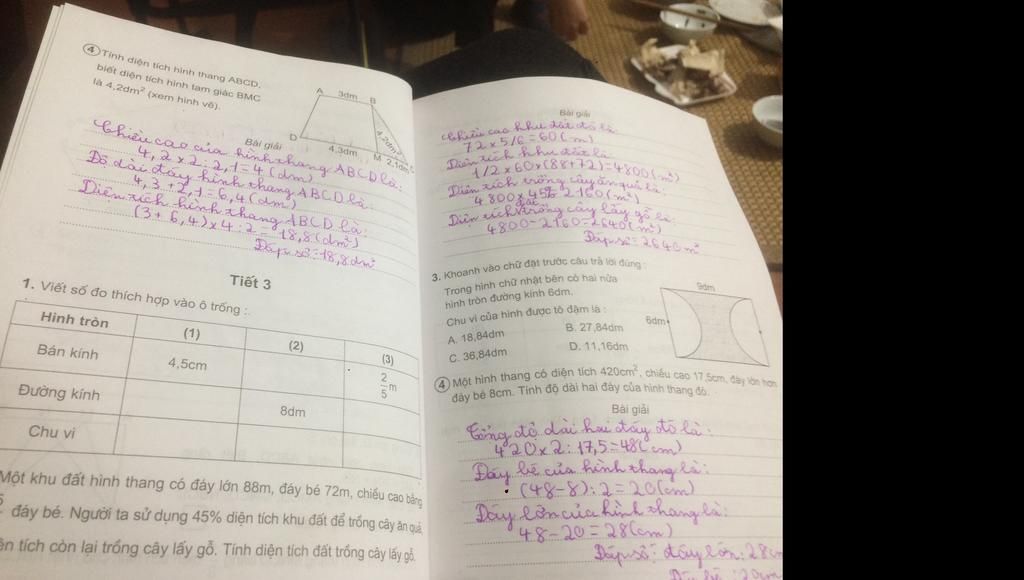 4 Tính diện tích hình thang ABCD,
biết diện tích hình tam giác BMC
là 4,2dm² (xem hình vẽ).
A 3dm B
4,2dm²
D 4,3dm M 2,1dm C
Bài giải
Chiều cao của hình thang ABCD là:
4,2 x 2 : 2,1 = 4 (dm)
Độ dài đáy hình thang ABCD là:
4,3 + 2,1 = 6,4 (dm)
Diện tích hình thang ABCD là:
(3 + 6,4) x 4 : 2 = 18,8 (dm²)
Đáp số: 18,8 dm²
Tiết 3
1. Viết số đo thích hợp vào ô trống :
Hình tròn (1) (2) (3)
Bán kính 4,5cm 2/5 m
Đường kính 8dm
Chu vi
Một khu đất hình thang có đáy lớn 88m, đáy bé 72m, chiều cao bằng
đáy bé. Người ta sử dụng 45% diện tích khu đất để trồng cây ăn quả,
ện tích còn lại trồng cây lấy gỗ. Tính diện tích đất trồng cây lấy gỗ.
Bài giải
Chiều cao khu đất đó là:
72 x 5/6 = 60 (m)
Diện tích khu đất là:
1/2 x 60 x (88+72) = 4800 (m²)
Diện tích trồng cây ăn quả là:
4800 x 45% 2160 (m²)
Diện tích đất trồng cây lấy gỗ là:
4800 - 2160 = 2640 (m²)
Đáp số = 2640 m²
3. Khoanh vào chữ đặt trước câu trả lời đúng :
Trong hình chữ nhật bên có hai nửa
hình tròn đường kính 6dm.
Chu vi của hình được tô đậm là :
A. 18,84dm B. 27,84dm
C. 36,84dm D. 11,16dm
9dm
6dm
4 Một hình thang có diện tích 420cm², chiều cao 17,5cm, đáy lớn hơn
đáy bé 8cm. Tính độ dài hai đáy của hình thang đó.
Bài giải
Tổng độ dài hai đáy đó là:
420 x 2 : 17,5 = 48 (cm)
Đáy bé của hình thang là:
(48 - 8) : 2 = 20 (cm)
Đáy lớn của hình thang là:
48 - 20 = 28 (cm)
Đáp số: đáy lớn: 28cm
Đáy bé: 20cm